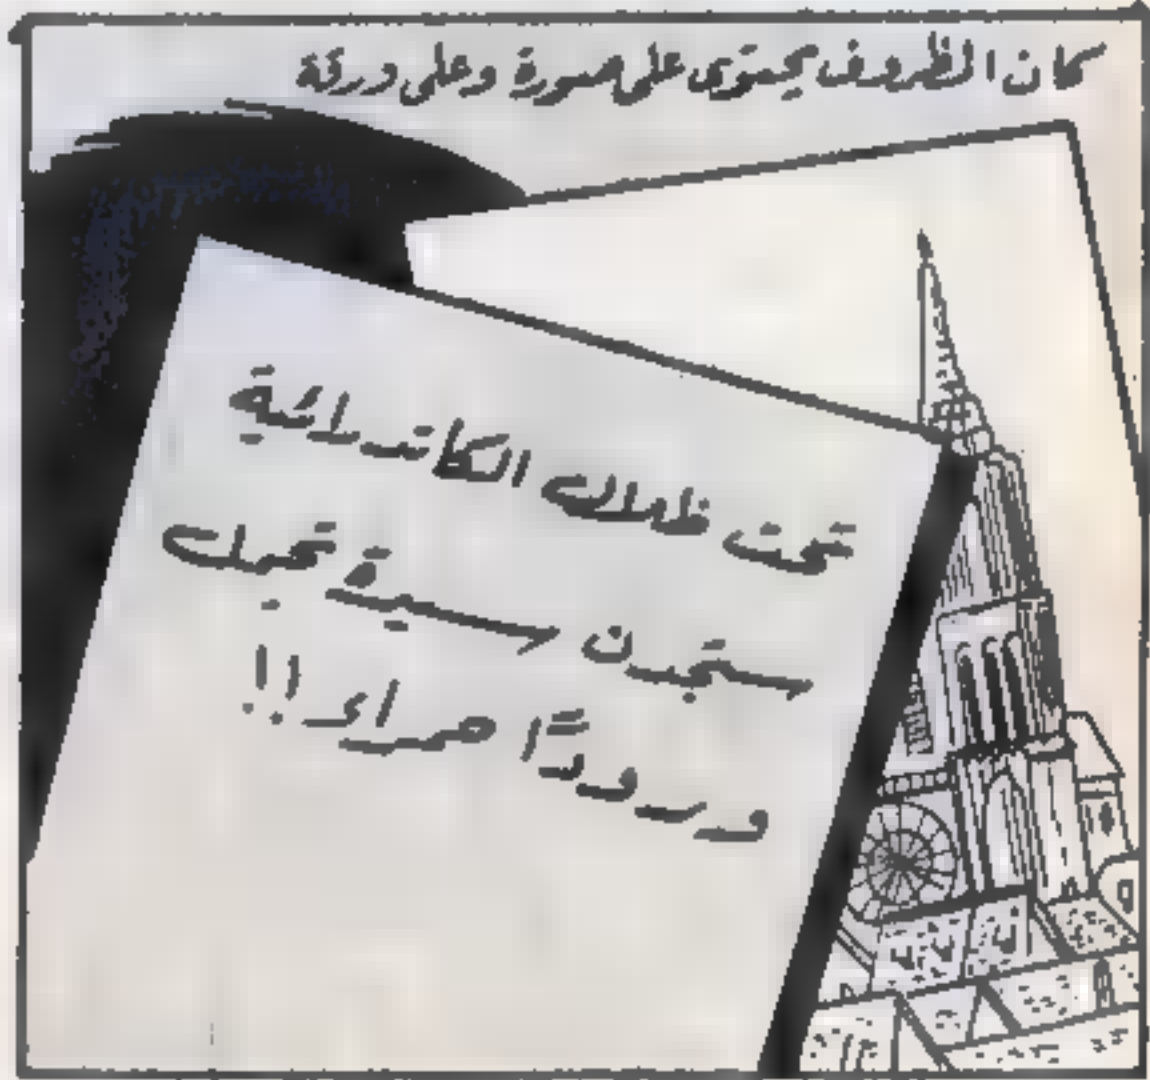 كان الظروف يحتوى على صورة وعلى ورقة
تحت ظلال الكاتدرائية
ستجدن سيدة تحمل
ورودًا حمراء !!